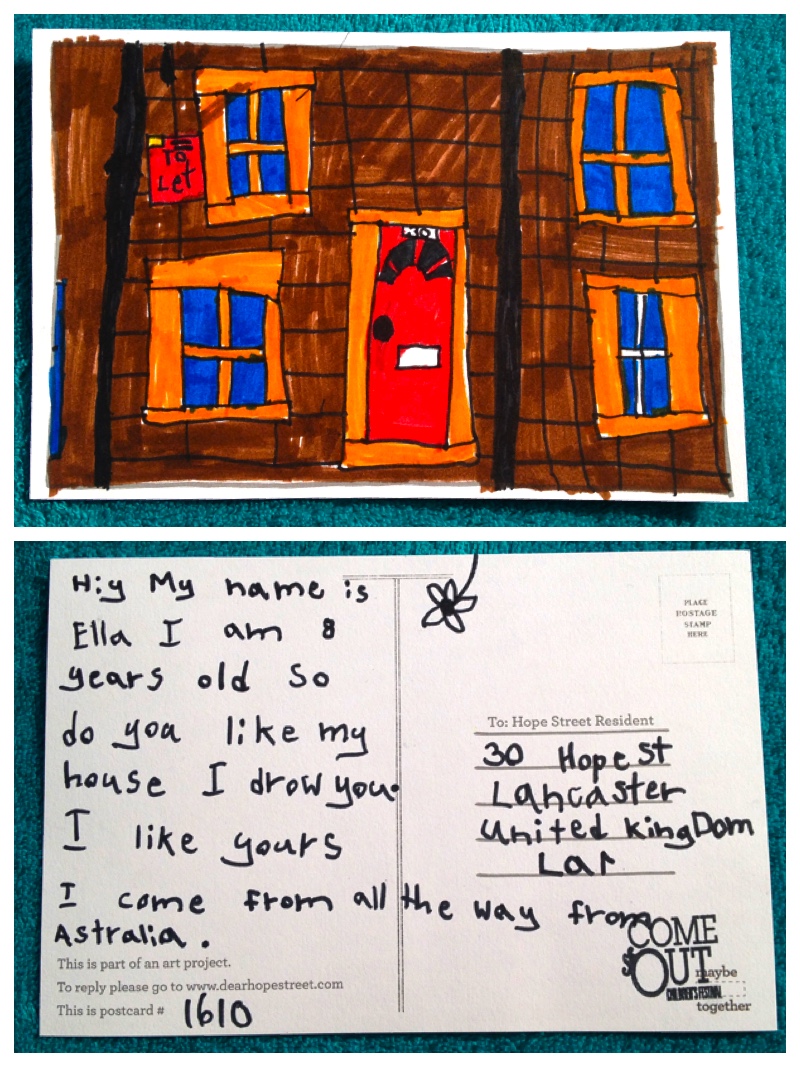 To
Let
30
Hiy My name is
Ella I am 8
years old so
do you like my
house I drow you.
I like yours
I come from all the way from
Astralia.
This is part of an art project.
To reply please go to www.dearhopestreet.com
This is postcard # 1610
PLACE
POSTAGE
STAMP
HERE
To: Hope Street Resident
30 Hope st
Lancaster
United KingDom
La1
COME
OUT
CHILDREN'S FESTIVAL
maybe
together